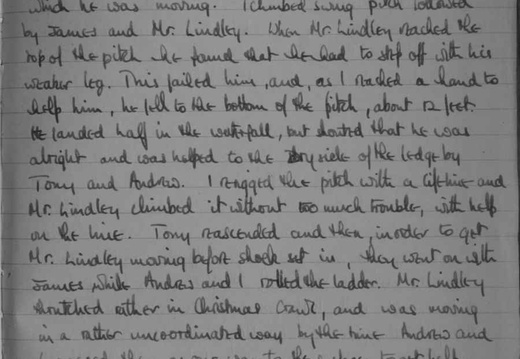 which he was moving. I climbed swing pitch followed
by James and Mr. Lindley. When Mr. Lindley reached the
top of the pitch he found that he had to step off with his
weaker leg. This failed him, and, as I reached a hand to
help him, he fell to the bottom of the pitch, about 12 feet.
He landed half in the waterfall, but shouted that he was
alright and was helped to the dry side of the ledge by
Tony and Andrew. I rigged the pitch with a lifeline and
Mr. Lindley climbed it without too much trouble, with help
on the line. Tony reascended and then, in order to get
Mr. Lindley moving before shock set in, they went on with
James while Andrew and I rolled the ladder. Mr. Lindley
thrutched rather in Christmas Crawl, and was moving
in a rather uncoordinated way by the time Andrew and